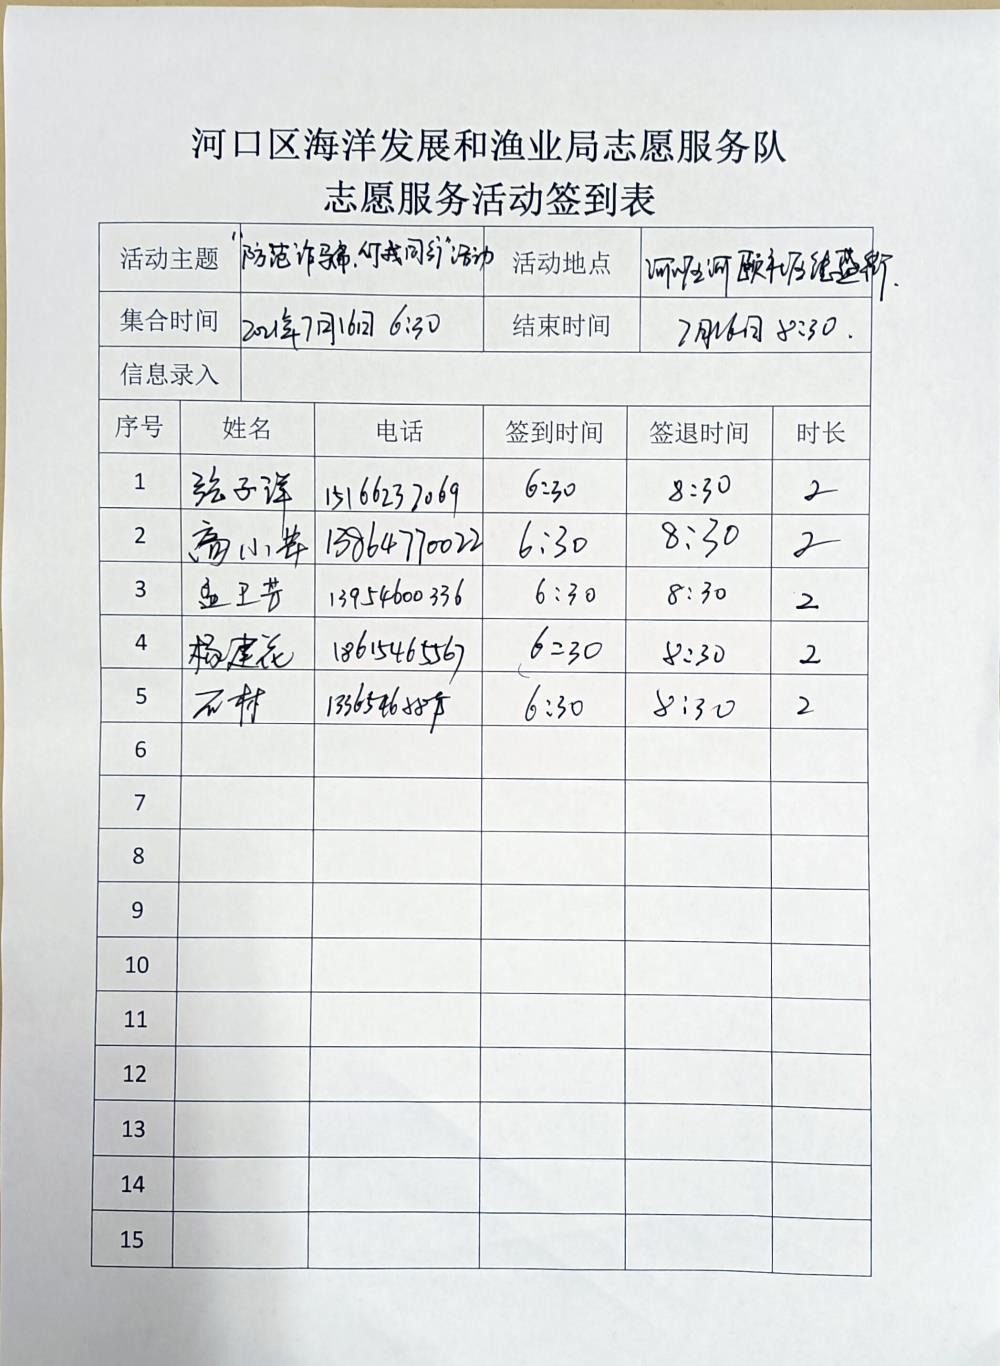 河口区海洋发展和渔业局志愿服务队
志愿服务活动签到表
活动主题 "防范诈骗、你我同行"活动 活动地点
集合时间 2021年7月16日 6:30 结束时间 7月16日 8:30.
信息录入
序号 姓名 电话 签到时间 签退时间 时长
1 张子洋 15166237069 6:30 8:30 2
2 高小 13864770022 6:30 8:30 2
3 孟卫芳 13954600336 6:30 8:30 2
4 杨建花 18615465567 6:30 8:30 2
5 石村 6:30 8:30 2
6
7
8
9
10
11
12
13
14
15